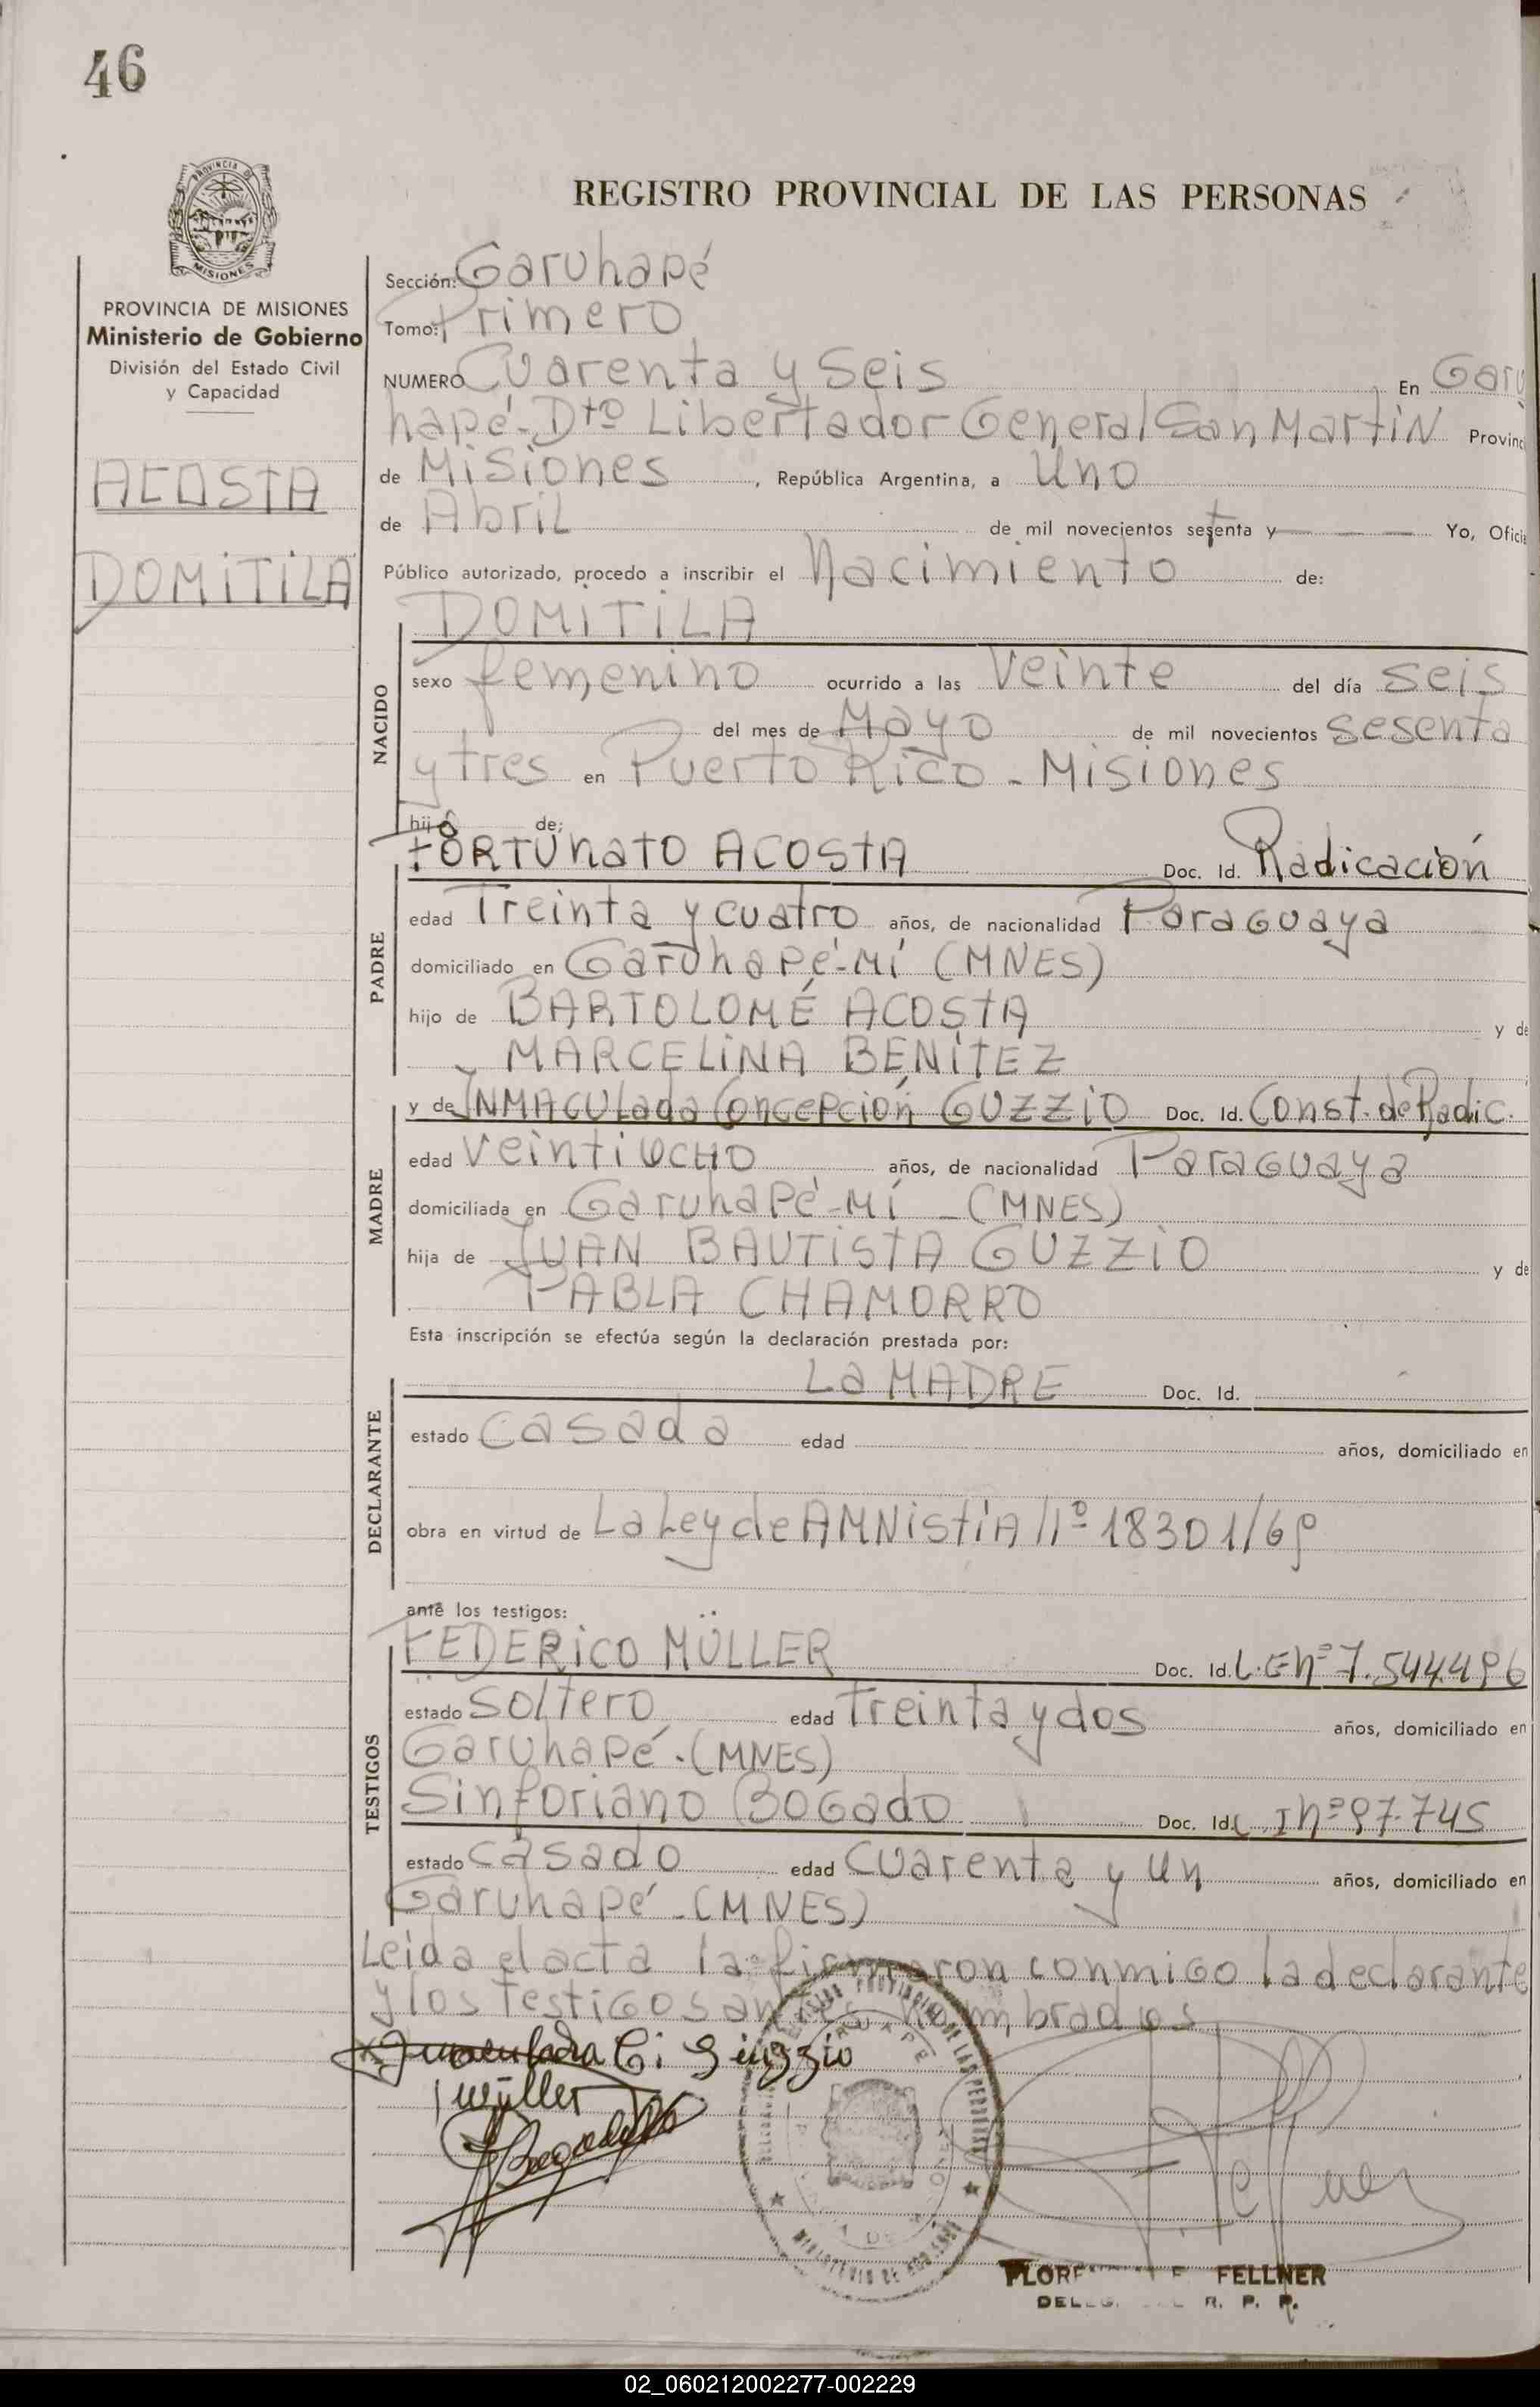 46
PROVINCIA DE
MISIONES
PROVINCIA DE MISIONES
Ministerio de Gobierno
División del Estado Civil
y Capacidad
ACOSTA
DOMITILA
REGISTRO PROVINCIAL DE LAS PERSONAS
Sección: Garuhapé
Tomo: Primero
NUMERO Cuarenta y Seis En Garu
hapé - Dto Libertador General San Martín Provinc
de Misiones, República Argentina, a Uno
de Abril de mil novecientos setenta y Yo, Ofici
Público autorizado, procedo a inscribir el Nacimiento de:
NACIDO
DOMITILA
sexo femenino ocurrido a las Veinte del día seis
del mes de Mayo de mil novecientos sesenta
y tres en Puerto Rico - Misiones
hija de:
PADRE
FORTUNATO ACOSTA Doc. Id. Radicación
edad Treinta y cuatro años, de nacionalidad Paraguaya
domiciliado en Garuhapé-Mí (MNES)
hijo de BARTOLOMÉ ACOSTA y de
MARCELINA BENÍTEZ
MADRE
y de INMACULADA CONCEPCIÓN GUZZIO Doc. Id. Const. de Radic.
edad Veintiocho años, de nacionalidad Paraguaya
domiciliada en Garuhapé-Mí - (MNES)
hija de JUAN BAUTISTA GUZZIO y de
PABLA CHAMORRO
Esta inscripción se efectúa según la declaración prestada por:
DECLARANTE
La MADRE Doc. Id.
estado Casada edad años, domiciliado en
obra en virtud de La Ley de AMNistíA Nº 18301/69
ante los testigos:
TESTIGOS
FEDERICO MÜLLER Doc. Id. L.E nº 7.544.496
estado Soltero edad Treinta y dos años, domiciliado en
Garuhapé - (MNES)
Sinforiano BOGado Doc. Id. C.I nº 97.745
estado Casado edad Cuarenta y Un años, domiciliado en
Garuhapé - (MNES)
Leida el acta la firmaron conmigo la declarante
y los Testigos antes nombrados
Inmaculada C. Guzzio
Müller
Bogado
FELLNER
R. P. P.
02_060212002277-002229